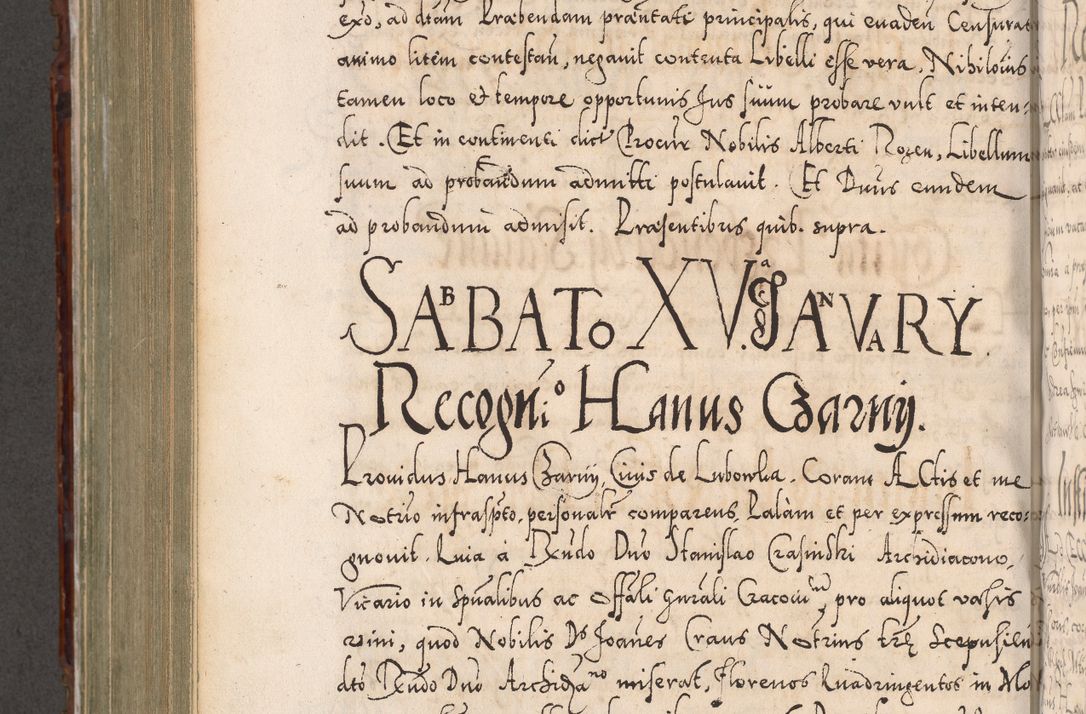 exõ, ad dtam Præbendam præntati principalis, qui euadeñ Censurat
animo litem contestañ, negauit contenta Libelli esse vera, Nihilomis
tamen loco et tempore opportunis Jus suum probare vult et inten-
dit. Et in continenti dict Procur Nobilis Alberti Rozen, Libellum
suum ad probandum admitti postulauit. Et Dnus eundem
ad probandum admisit. Præsentibus quib. supra.
SABBATO XV. JANVARY.
Recogni.o Hanus Czarny.
Prouidus Hanus Czarny, Ciuis de Lubowla. Coram ACtis et me
Notrio infraspto, personalr comparens, Palàm et per expressum reco-
gnouit. Quia à Rxndo Dno Stanislao Crasinski Archidiacono,
Vicario in spualibus ac offali gnrali Cracouien, pro aliquot vasis
vini, quod Nobilis Ds Joañes Craus Notrius trę Scepusieñ
dto Rxndo Dno Archidano miserat, Florenos Quadringentos in Mo